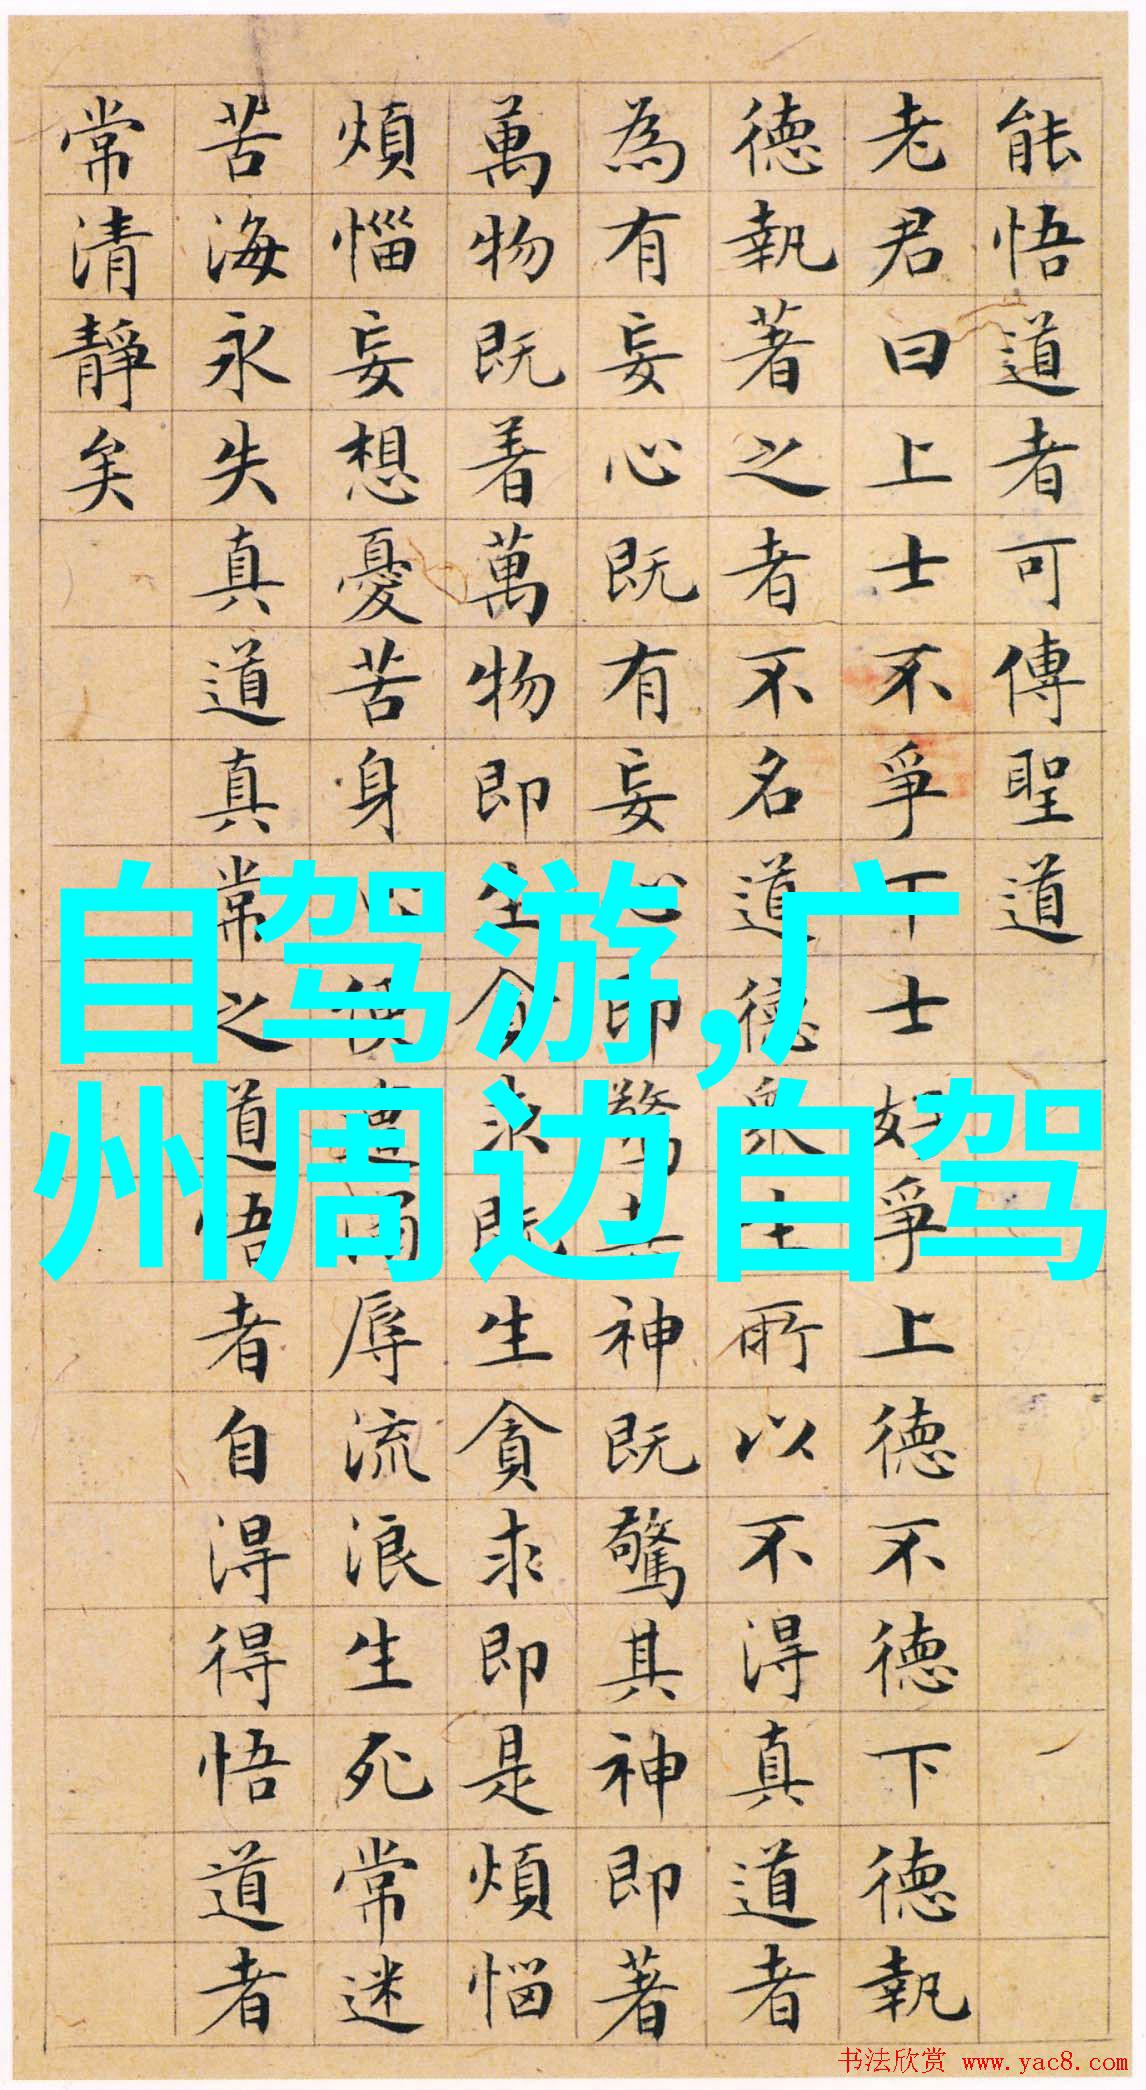 能悟道者可傳聖道
老君曰上士不爭下士好爭上德不德下德執
德執著之者不名道德眾士所以不得真道者
為有妄心既有妄心即驚其神既驚其神即著
萬物既着萬物即生貪求既生貪求即是煩惱
煩惱妄想憂苦身心便遭濁辱流浪生死常迷
苦海永失真道真常之道悟者自得得悟道者
常清靜矣
自驾游,广
州周边自驾
书法欣赏 www.yac8.com